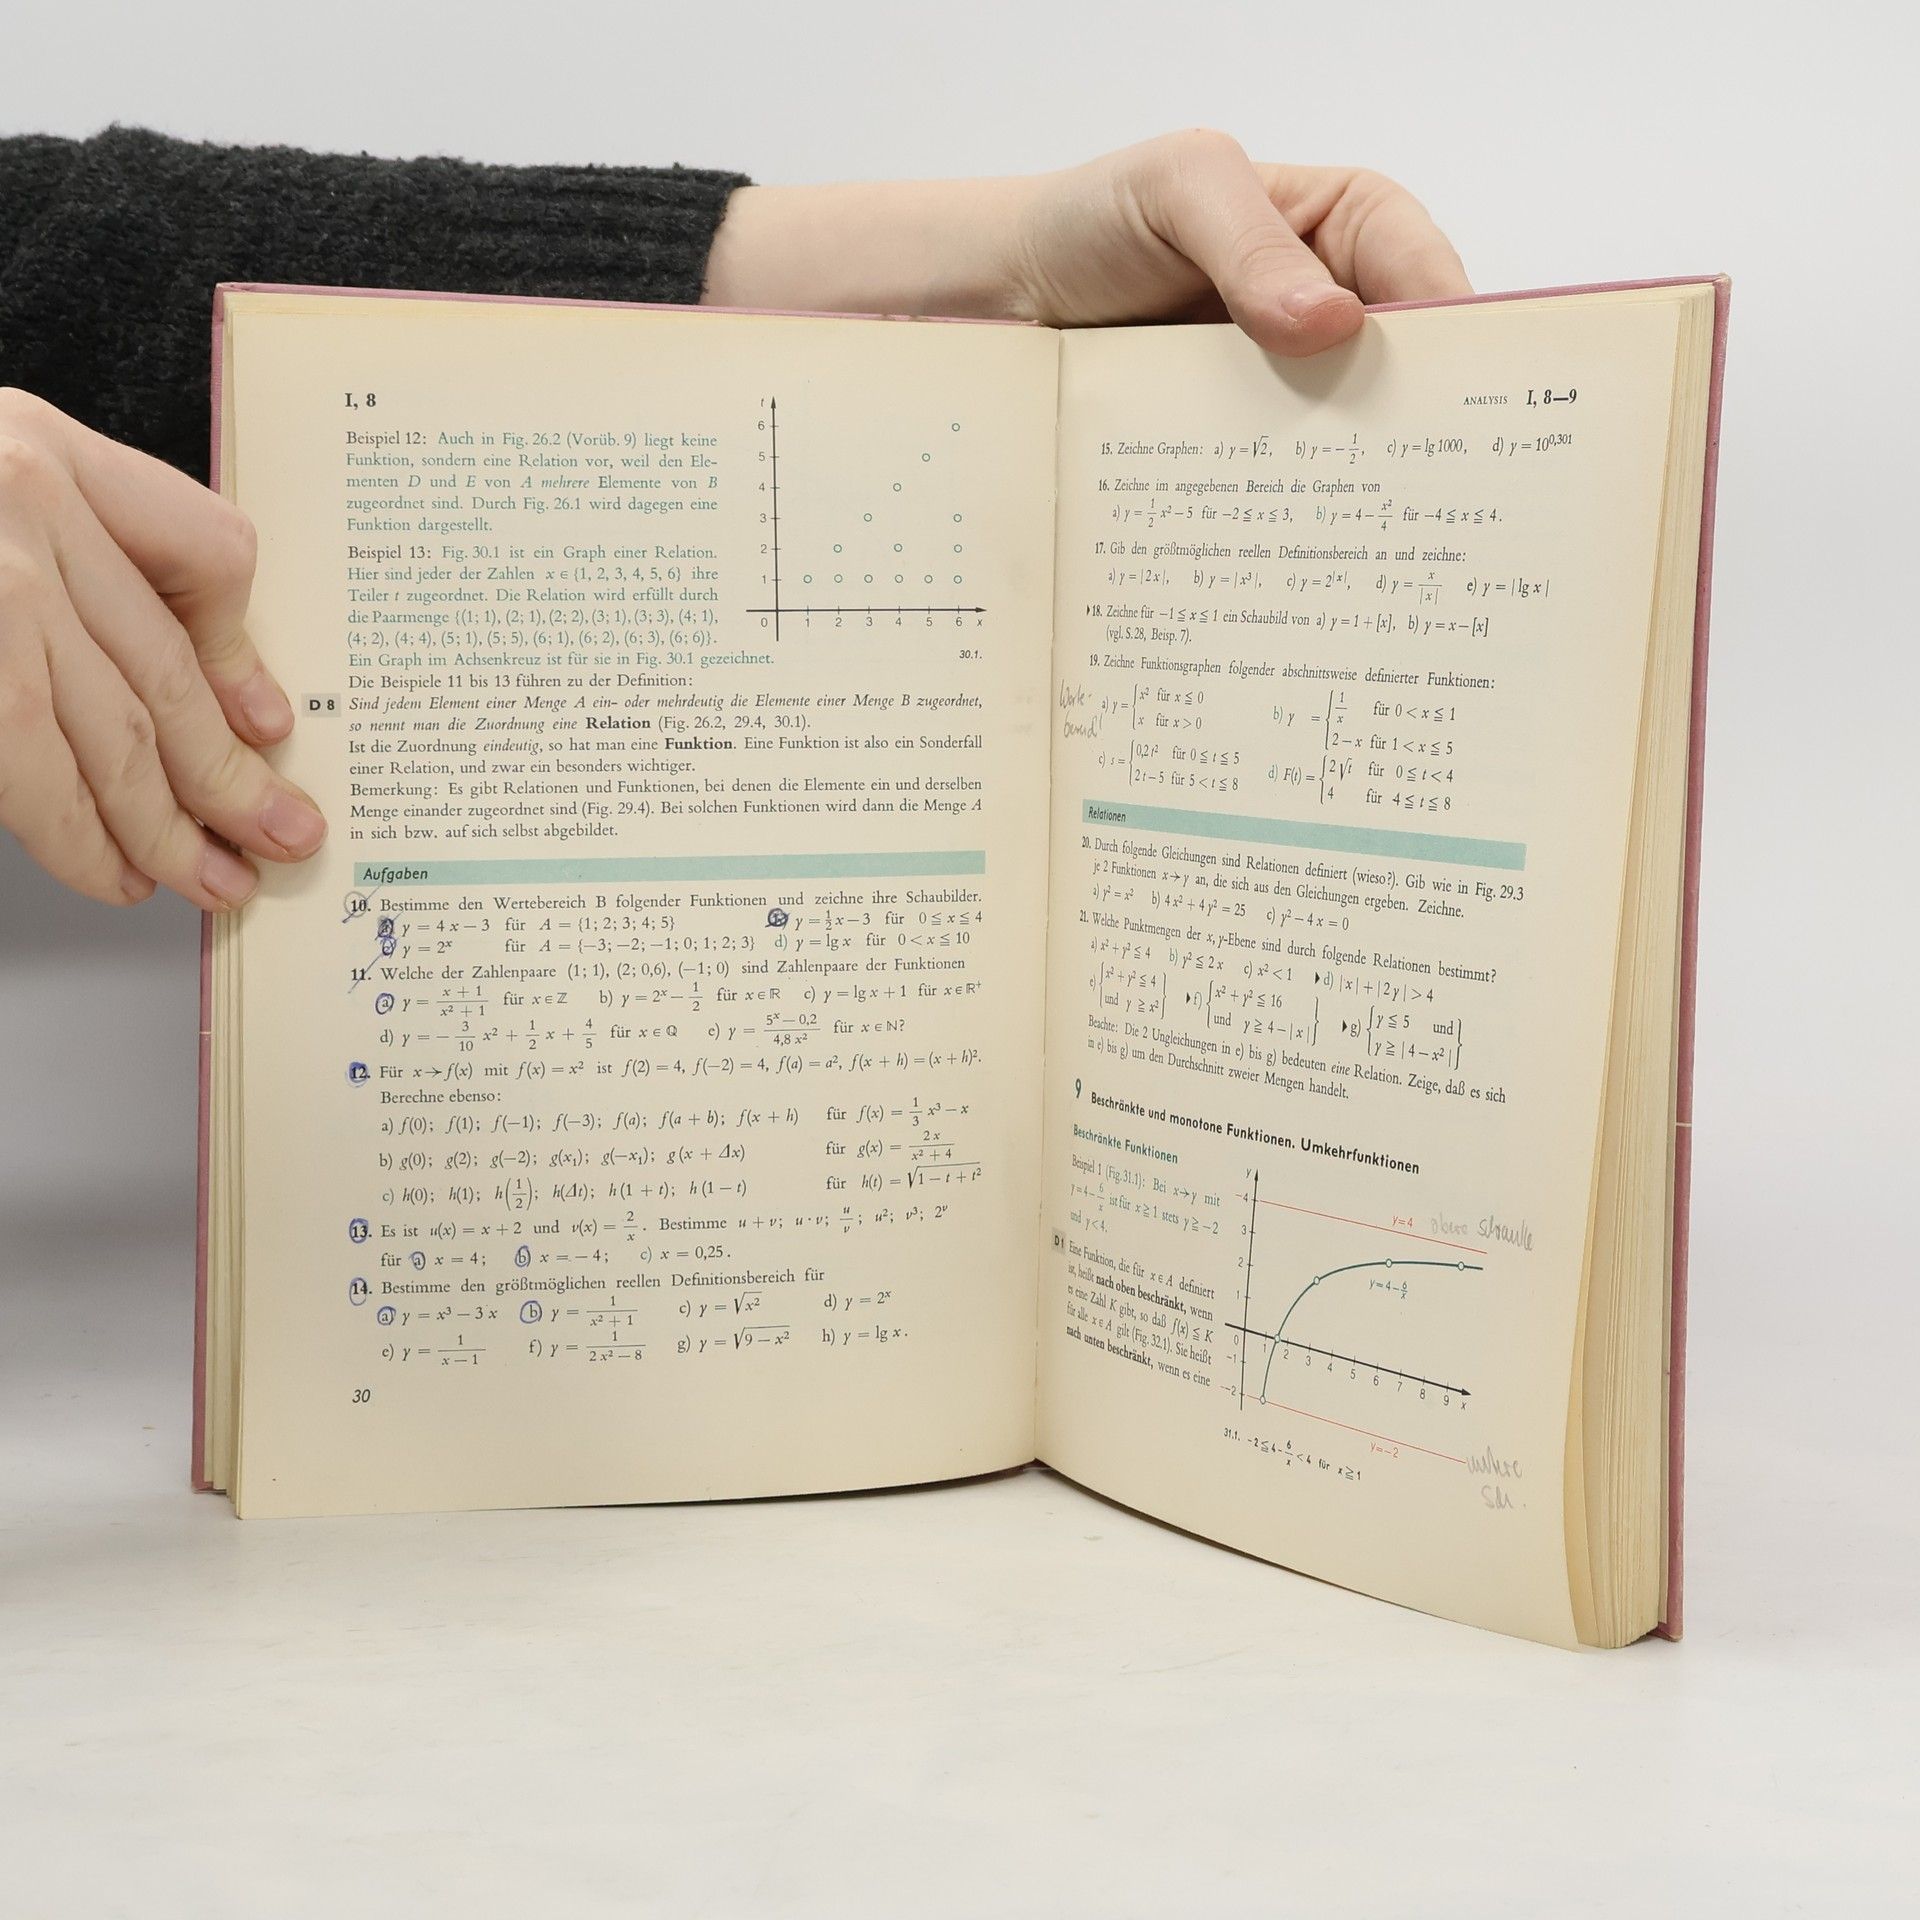 I, 8
Beispiel 12: Auch in Fig. 26.2 (Vorüb. 9) liegt keine
Funktion, sondern eine Relation vor, weil den Ele-
menten D und E von A mehrere Elemente von B
zugeordnet sind. Durch Fig. 26.1 wird dagegen eine
Funktion dargestellt.
Beispiel 13: Fig. 30.1 ist ein Graph einer Relation.
Hier sind jeder der Zahlen x ∈ {1, 2, 3, 4, 5, 6} ihre
Teiler t zugeordnet. Die Relation wird erfüllt durch
die Paarmenge {(1; 1), (2; 1), (2; 2), (3; 1), (3; 3), (4; 1),
(4; 2), (4; 4), (5; 1), (5; 5), (6; 1), (6; 2), (6; 3), (6; 6)}.
Ein Graph im Achsenkreuz ist für sie in Fig. 30.1 gezeichnet.
t
6
5
4
3
2
1
0 1 2 3 4 5 6 x
30.1.
Die Beispiele 11 bis 13 führen zu der Definition:
D 8 Sind jedem Element einer Menge A ein- oder mehrdeutig die Elemente einer Menge B zugeordnet,
so nennt man die Zuordnung eine Relation (Fig. 26.2, 29.4, 30.1).
Ist die Zuordnung eindeutig, so hat man eine Funktion. Eine Funktion ist also ein Sonderfall
einer Relation, und zwar ein besonders wichtiger.
Bemerkung: Es gibt Relationen und Funktionen, bei denen die Elemente ein und derselben
Menge einander zugeordnet sind (Fig. 29.4). Bei solchen Funktionen wird dann die Menge A
in sich bzw. auf sich selbst abgebildet.
Aufgaben
10. Bestimme den Wertebereich B folgender Funktionen und zeichne ihre Schaubilder.
a) y = 4x − 3 für A = {1; 2; 3; 4; 5} b) y = ½x − 3 für 0 ≦ x ≦ 4
c) y = 2^x für A = {−3; −2; −1; 0; 1; 2; 3} d) y = lg x für 0 < x ≦ 10
11. Welche der Zahlenpaare (1; 1), (2; 0,6), (−1; 0) sind Zahlenpaare der Funktionen
a) y = (x + 1)/(x² + 1) für x ∈ ℤ b) y = 2^x − 1/2 für x ∈ ℝ c) y = lg x + 1 für x ∈ ℝ⁺
d) y = − 3/10 x² + 1/2 x + 4/5 für x ∈ ℚ e) y = (5^x − 0,2)/(4,8 x²) für x ∈ ℕ?
12. Für x → f(x) mit f(x) = x² ist f(2) = 4, f(−2) = 4, f(a) = a², f(x + h) = (x + h)².
Berechne ebenso:
a) f(0); f(1); f(−1); f(−3); f(a); f(a + b); f(x + h) für f(x) = 1/3 x³ − x
b) g(0); g(2); g(−2); g(x₁); g(−x₁); g(x + Δx) für g(x) = 2x/(x² + 4)
c) h(0); h(1); h(1/2); h(Δt); h(1 + t); h(1 − t) für h(t) = √(1 − t + t²)
13. Es ist u(x) = x + 2 und v(x) = 2/x. Bestimme u + v; u · v; u/v; u²; v³; 2^v
für a) x = 4; b) x = − 4; c) x = 0,25.
14. Bestimme den größtmöglichen reellen Definitionsbereich für
a) y = x³ − 3x b) y = 1/(x² + 1) c) y = √x² d) y = 2^x
e) y = 1/(x − 1) f) y = 1/(2x² − 8) g) y = √(9 − x²) h) y = lg x.
30
ANALYSIS I, 8—9
15. Zeichne Graphen: a) y = √2, b) y = − 1/2, c) y = lg 1000, d) y = 10^0,301
16. Zeichne im angegebenen Bereich die Graphen von
a) y = 1/2 x² − 5 für −2 ≦ x ≦ 3, b) y = 4 − x²/4 für −4 ≦ x ≦ 4.
17. Gib den größtmöglichen reellen Definitionsbereich an und zeichne:
a) y = |2x|, b) y = |x³|, c) y = 2^|x|, d) y = x/|x| e) y = |lg x|
18. Zeichne für −1 ≦ x ≦ 1 ein Schaubild von a) y = 1 + [x], b) y = x − [x]
(vgl. S. 28, Beisp. 7).
19. Zeichne Funktionsgraphen folgender abschnittsweise definierter Funktionen:
a) y = { x² für x ≦ 0
x für x > 0
b) y = { 1/x für 0 < x ≦ 1
2 − x für 1 < x ≦ 5
c) s = { 0,2t² für 0 ≦ t ≦ 5
2t − 5 für 5 < t ≦ 8
d) F(t) = { 2√t für 0 ≦ t < 4
4 für 4 ≦ t ≦ 8
Relationen
20. Durch folgende Gleichungen sind Relationen definiert (wieso?). Gib wie in Fig. 29.3
je 2 Funktionen x → y an, die sich aus den Gleichungen ergeben. Zeichne.
a) y² = x² b) 4x² + 4y² = 25 c) y² − 4x = 0
21. Welche Punktmengen der x, y-Ebene sind durch folgende Relationen bestimmt?
a) x² + y² ≦ 4 b) y² ≦ 2x c) x² < 1 d) |x| + |2y| > 4
e) { x² + y² ≦ 4
und y ≧ x² }
f) { x² + y² ≦ 16
und y ≧ 4 − |x| }
g) { y ≦ 5 und
y ≧ |4 − x²| }
Beachte: Die 2 Ungleichungen in e) bis g) bedeuten eine Relation. Zeige, daß es sich
in e) bis g) um den Durchschnitt zweier Mengen handelt.
9 Beschränkte und monotone Funktionen. Umkehrfunktionen
Beschränkte Funktionen
Beispiel 1 (Fig. 31.1): Bei x → y mit
y = 4 − 6/x ist für x ≧ 1 stets y ≧ −2
und y < 4.
D 1 Eine Funktion, die für x ∈ A definiert
ist, heißt nach oben beschränkt, wenn
es eine Zahl K gibt, so daß f(x) ≦ K
für alle x ∈ A gilt (Fig. 32.1). Sie heißt
nach unten beschränkt, wenn es eine
y
4
3
2
1
0 1 2 3 4 5 6 7 8 9 x
−1
−2
y=4 obere Schranke
y=4−6/x
y=−2
untere
Schr.
31.1. −2 ≦ 4 − 6/x < 4 für x ≧ 1